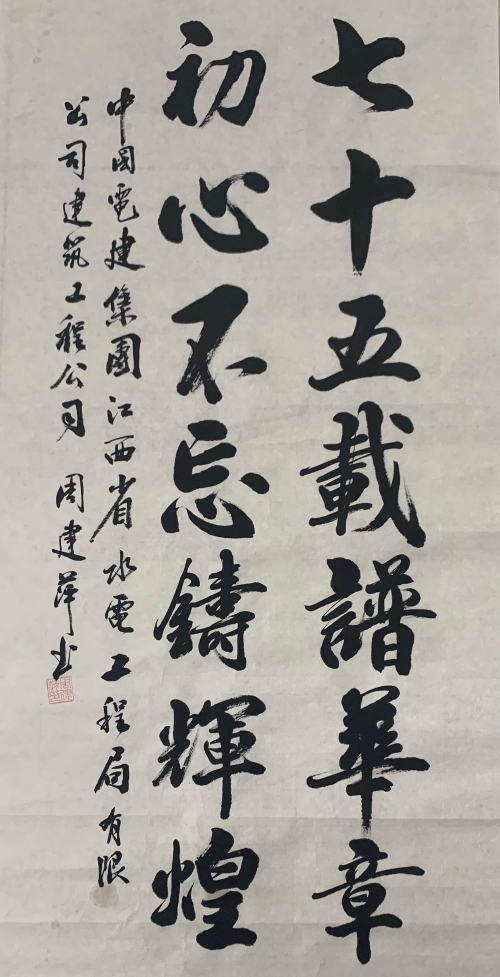 七十五載譜華章
初心不忘鑄輝煌
中國電建集團江西省水電工程局有限
公司建筑工程公司 周建萍书